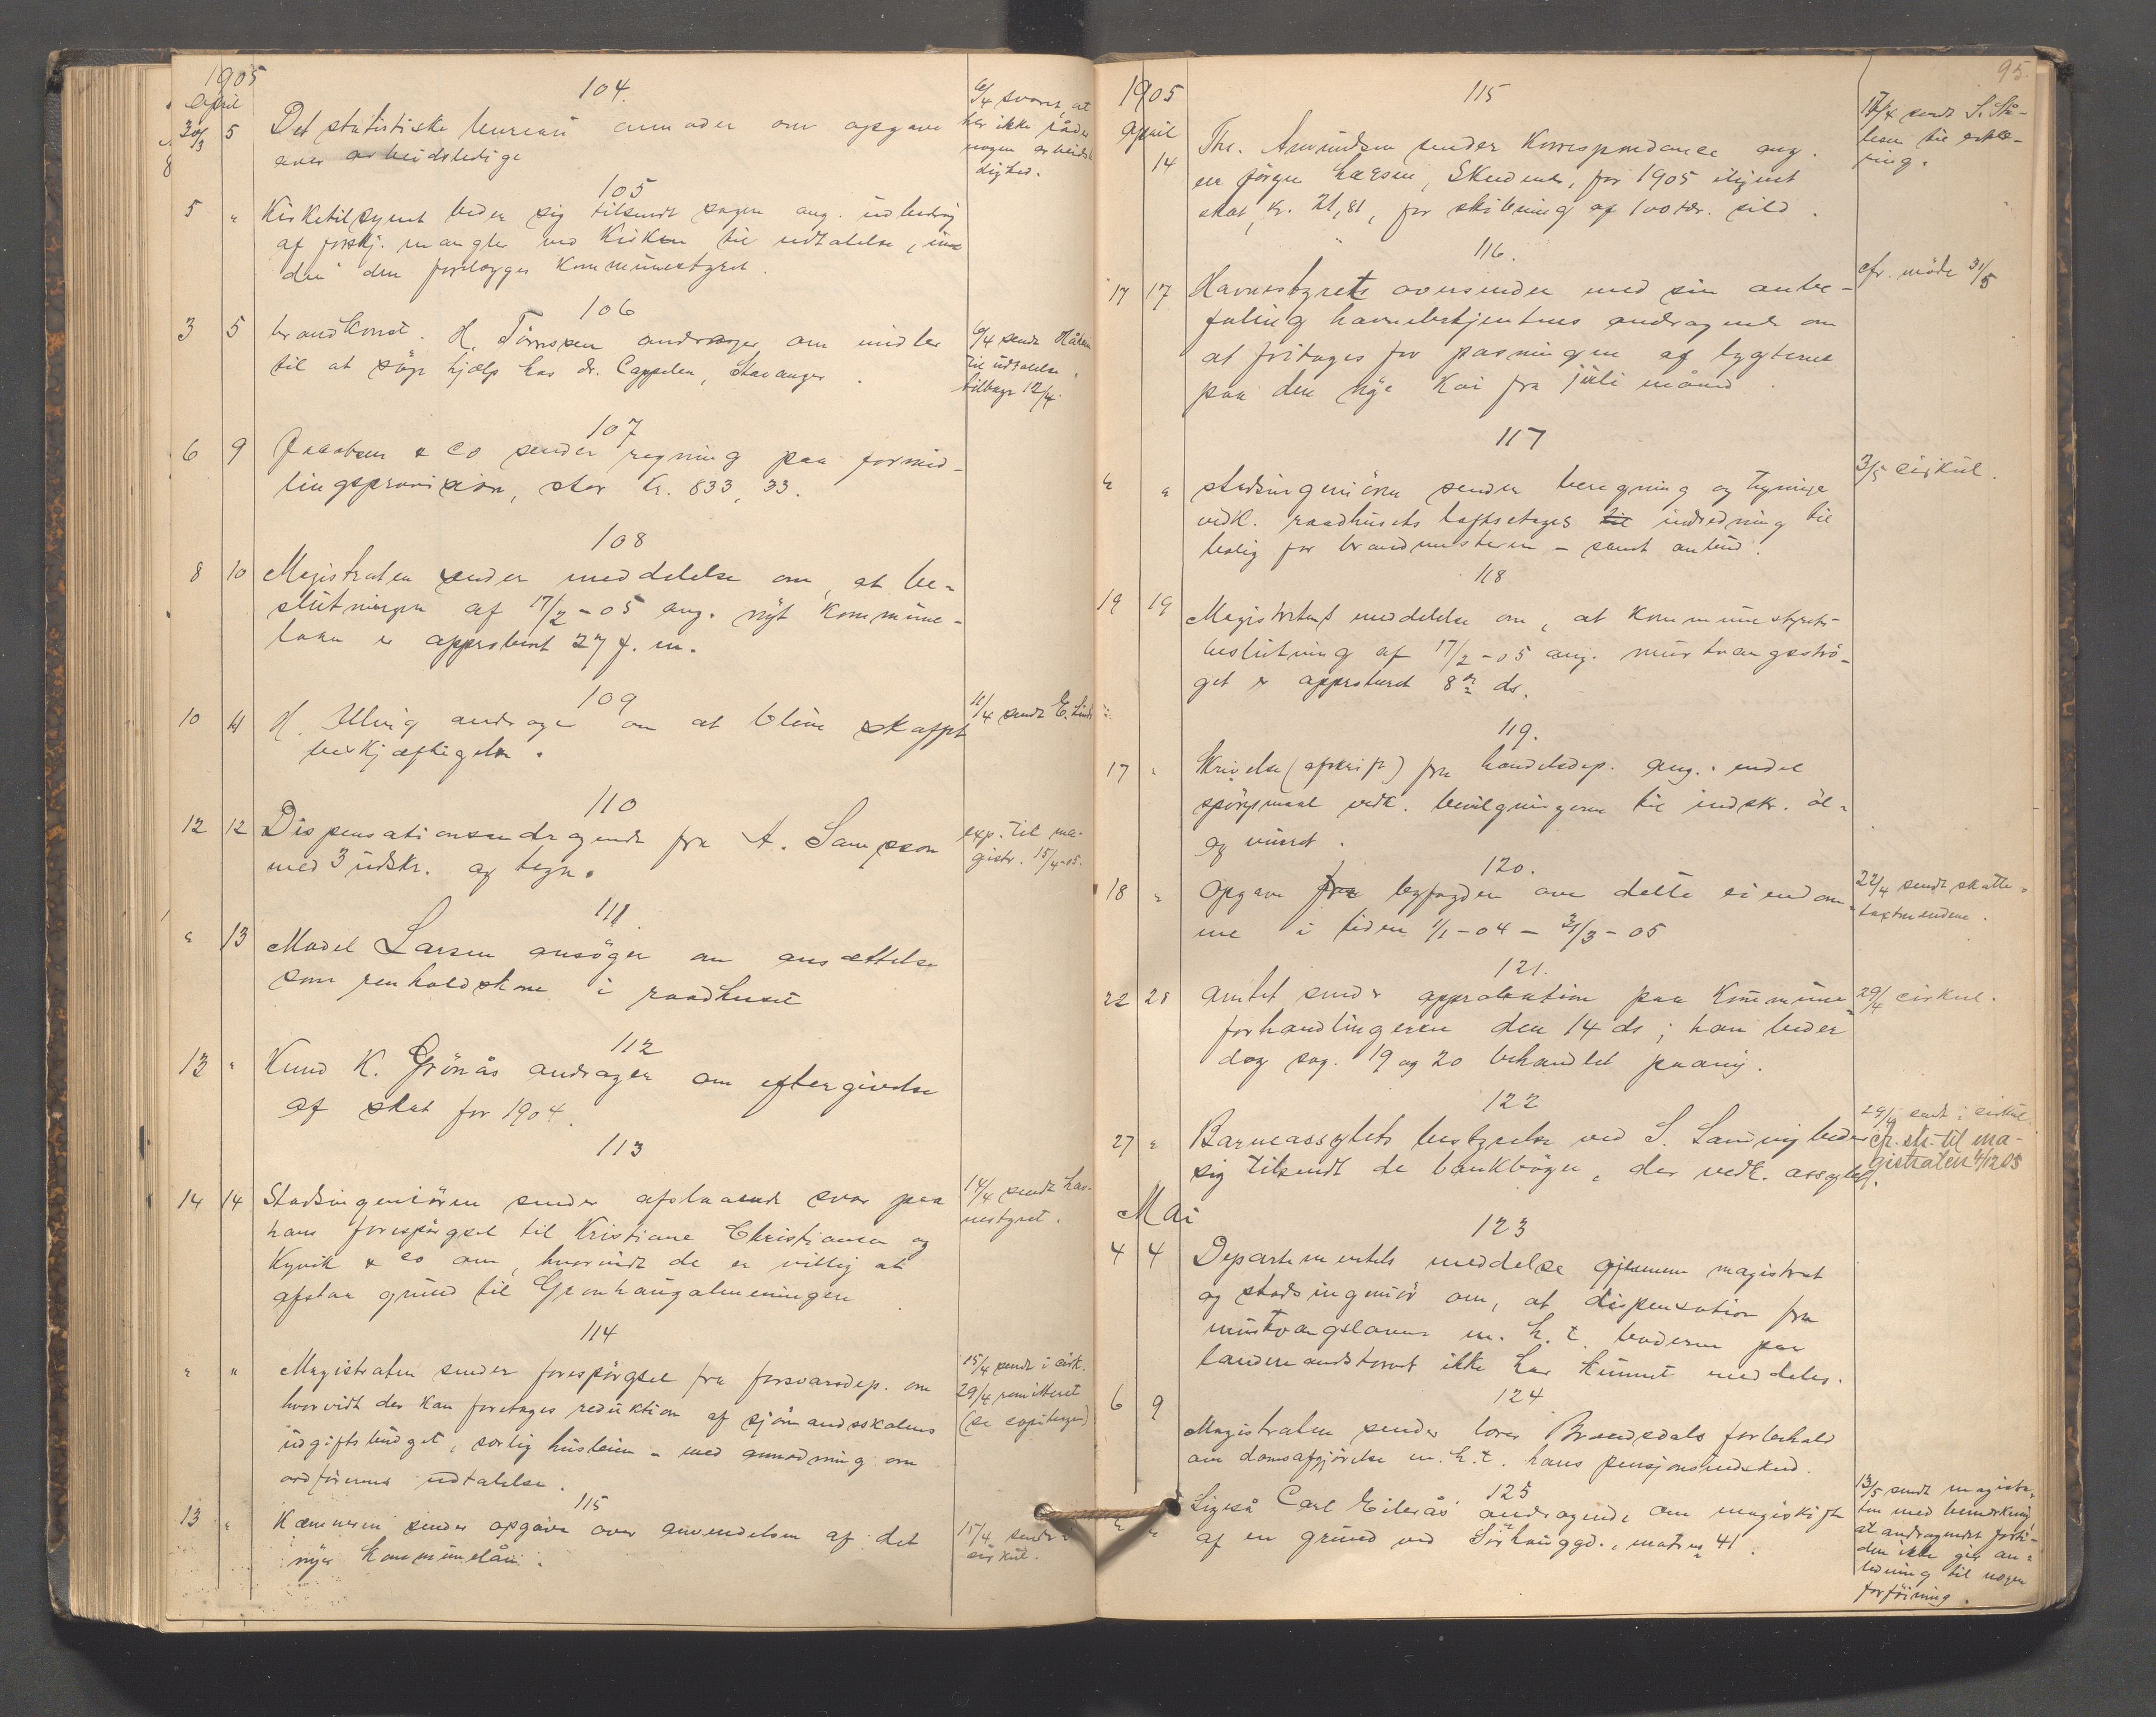 1905
April
104.
30/3 5 Det statistiske bureau anmoder om opgave
over arbeidsledige
6/4 svaret, at
her ikke råder
nogen arbeids
dighed.
8
105
5 " Kirketilsynet beder sig tilsendt sagen ang. udbedring
af forskj. mangler ved Kirken til udtalelse, in-
den den forelægges Kommunestyret.
106
3 5 brandkonst. H. Tönnesen andrager om midler
til at söge hjælp hos dr. Cappelen, Stavanger.
6/4 sendt
til udtalelse.
tilbage 12/4.
107
6 9 Jacobsen & Co sender regning paa formid-
lingsprovision, stor Kr. 833,33.
108
8 10 Magistraten sender meddelelse om, at be-
slutningen af 17/2-05 ang. nyt Kommune-
laan er approbert 27 f. m.
109
10 11 H. Elling andrager om at blive skaffet
beskjæftigelse.
11/4 sendt E. Lind
110
12 12 Dispensationsandragende fra A. Sampson
med 3 udskr. og tegn.
exp. til ma-
gistr. 15/4-05.
111
" 13 Madel Larsen ansöger om ansættelse
som renholdskone i raadhuset
112
13 " Knud K. Grönås andrager om eftergivelse
af skat for 1904.
113
14 14 Stadsingeniören sender afslaaende svar paa
hans forespörgsel til Kristiane Christiansen og
Kyvik & Co om, hvorvidt de er villig at
afstaa grund til Gronhaugalmeningen
14/4 sendt hav-
nestyret.
114
" " Magistraten sender forespörgsel fra forsvarsdep. om
hvorvidt der kan foretages reduktion af sjömandsskolens
udgiftsbudget, særlig husleien - med anmodning om
ordförerens udtalelse.
15/4 sendt i cirk.
29/4 remitteret
(se copibogen)
115
13 " Kæmneren sender opgave over anvendelsen af det
nye kommunelån.
15/4 sendt
cirkul.
95.
1905
April
115
14 Th. Amundsen sender Korrespondance ang.
en Jörgen Larsen, Skudenes, for 1905 ilignet
skat, kr. 21,81, for skibning af 100 tdr. sild.
17/4 sendt S. Stå-
lesen til erklæ-
ring.
116.
17 17 Havnestyrets oversender med sin anbe-
faling havnebetjentens andragende om
at fritages for pasningen af lygterne
paa den nye Kai fra juli måned.
cfr. möde 31/5
117
" " stadsingeniören sender beregning og tegninger
vedk. raadhusets loftsetages til indredning til
bolig for brandmesteren - samt anbud.
3/5 cirkul.
118
19 19 Magistratens meddelelse om, at Kommunestyrets
beslutning af 17/2-05 ang. murtvangsströ-
get er approberet 8de ds.
119.
17 " Skrivelse (afskrift) fra handelsdep. ang. endel
spörgsmaal vedk. bevilgningerne til indskr. öl-
og vinret.
120.
18 " Opgave fra byfogden over delte eiendom-
me i tiden 1/1-04 - 31/3-05
22/4 sendt skatte-
taxtmændene.
121.
22 28 Amtet sender approbation paa Kommune-
forhandlingerne den 14 ds; han beder
dog sag. 19 og 20 behandlet paany.
29/4 cirkul.
122
27 " Barneassylets bestyrelse ved S. Sandvig beder
sig tilsendt de bankböger, der vedk. assylet.
29/4 sendt i cirkul.
cfr. skr. til ma-
gistraten 4/12 05
Mai
123
4 4 Departementets meddelse gjennem magistrat
og stadsingeniör om, at dispensation fra
murtvangsloven m. h. t. boderne paa
torvet ikke har kunnet meddeles.
124
6 9 Magistraten sender lærer Brandsdals forbehold
om domsafgjörelse m. h. t. hans pensjonsindskud.
125
" " Ligeså Carl Eilerås' andragende om magiskifte
af en grund ved Sörhauggd., matr. no 41.
13/5 sendt magistra-
ten med bemærkning,
at andragendet forti-
den ikke gir an-
ledning til nogen
forföining.